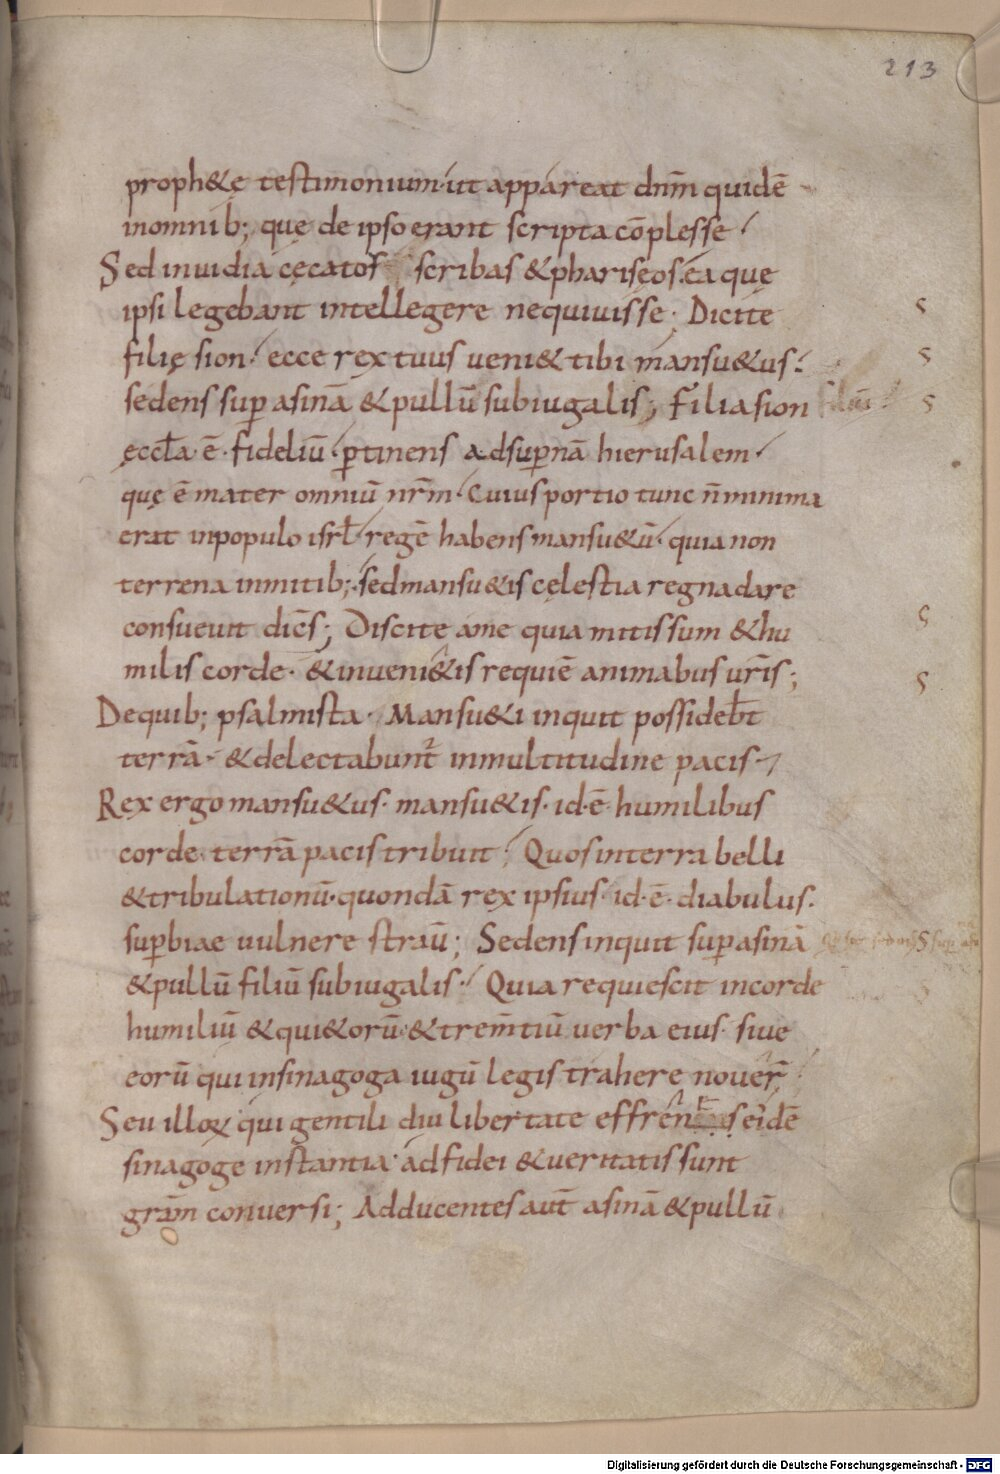 213
proph&ę testimonium· ut appareat dn̄m quidē
inomnib; quę de ipso erant scripta cōplesse·
Sed inuidia cęcatos scribas &phariseos· ea quę
ipsi legebant intellegere nequiuisse; Dicite
filię sion· ecce rex tuus ueni& tibi mansu&us·
sedens sup̄ asinā &pullū subiugalis; Filia sion
ęccl̄a·ē·fideliū· ꝑtinens adsup̄nā hierusalem·
quę ē mater omniū nr̄m· Cuius portio tunc n̄ minima
erat inpopulo isrl̄· regē habens mansu&ū· quia non
terrena inmitib; sed mansu&is cęlestia regna dare
consueuit dic̄s; Discite ame quia mitis sum &hu
milis corde· &inueni&is requiē animabus ur̄is;
Dequib; psalmista· Mansu&i inquit possideb̄t
terrā· &delectabunt̄ inmultitudine pacis·
Rex ergo mansu&us· mansu&is·id·ē·humilibus
corde· terrā pacis tribuit; Quos interra belli
&tribulationū· quondā rex ipsius·id·ē·diabulus·
sup̄biae uulnere strau̅; Sedens inquit sup̄ asinā
&pullū filiū subiugalis· Quia requiescit incorde
humiliū &qui&orū·&trem̄tiū uerba eius· siue
eorū qui insinagoga iugū legis trahere nouer̄
Seu illoꝝ qui gentili diu libertate effren seidē
sinagoge instantia· ad fidei &ueritatis sunt
grām conuersi; Adducentes aut̄ asinā &pullū
Digitalisierung gefördert durch die Deutsche Forschungsgemeinschaft - DFG